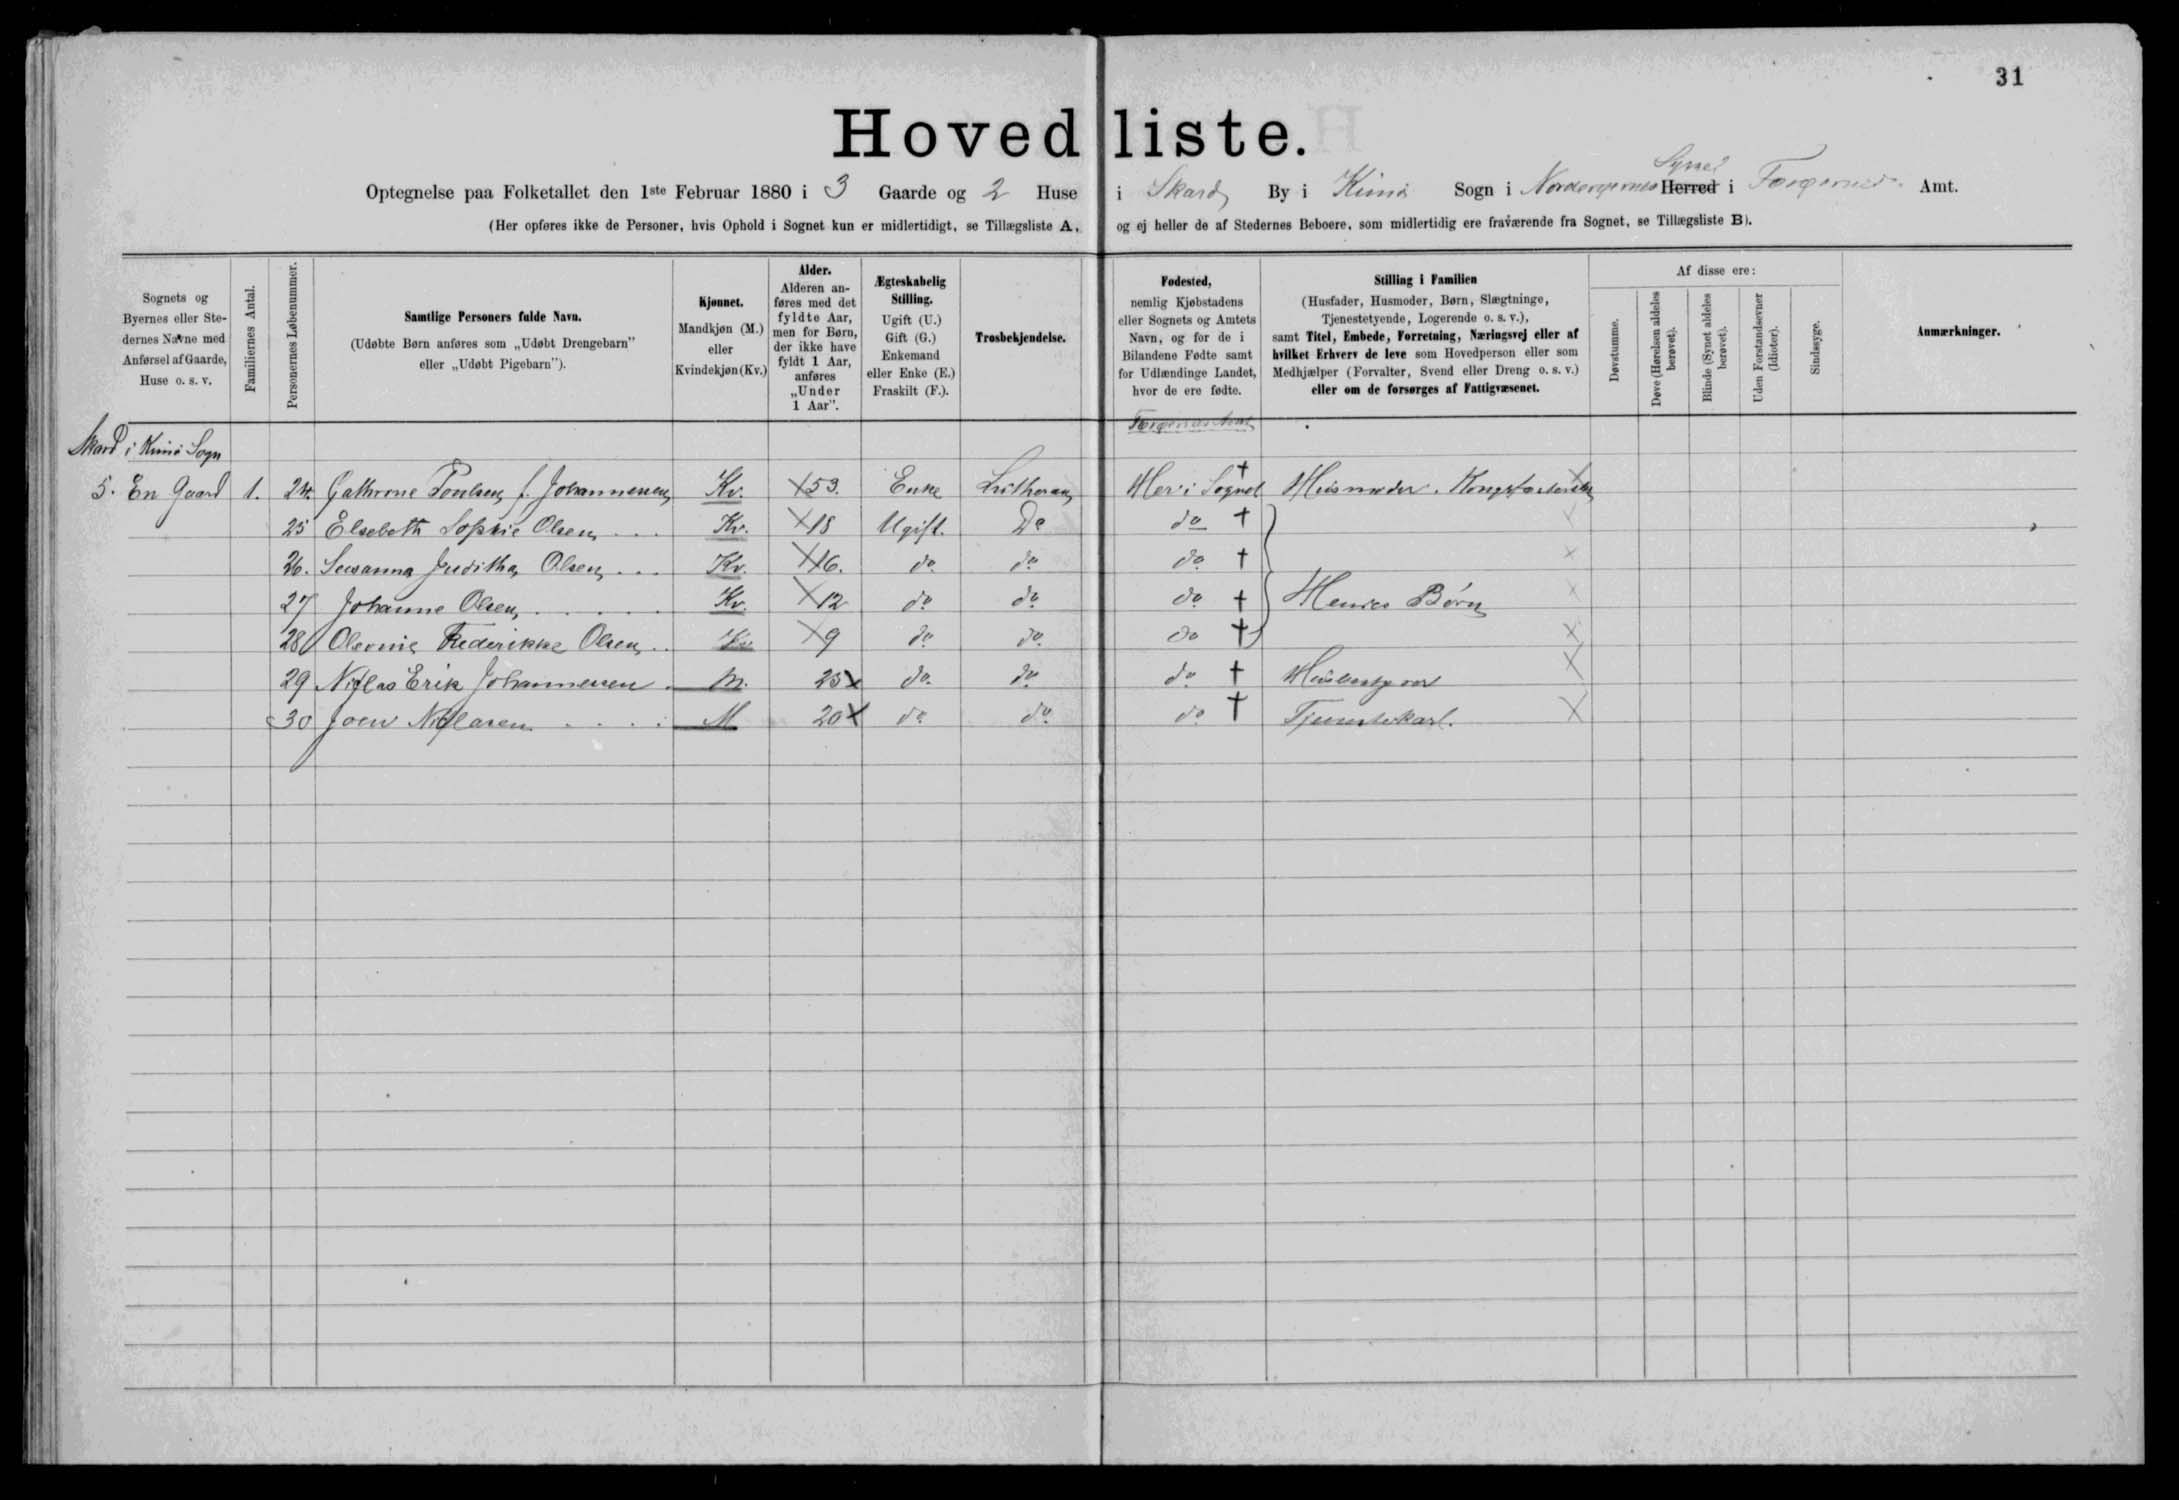 31
Hovedliste.
Optegnelse paa Folketallet den 1ste Februar 1880 i 3 Gaarde og 2 Huse i Skard By i Kunø Sogn i Norderøernes Herred Syssel i Færøernes Amt.
(Her opføres ikke de Personer, hvis Ophold i Sognet kun er midlertidigt, se Tillægsliste A, og ej heller de af Stedernes Beboere, som midlertidig ere fraværende fra Sognet, se Tillægsliste B).
Sognets og Byernes eller Stedernes Navne med Anførsel af Gaarde, Huse o. s. v.
Familiernes Antal.
Personernes Løbenummer.
Samtlige Personers fulde Navn.
(Udøbte Børn anføres som „Udøbt Drengebarn” eller „Udøbt Pigebarn”).
Kjønnet.
Mandkjøn (M.) eller Kvindekjøn (Kv.)
Alder.
Alderen anføres med det fyldte Aar, men for Børn, der ikke have fyldt 1 Aar, anføres „Under 1 Aar”.
Ægteskabelig Stilling.
Ugift (U.) Gift (G.) Enkemand eller Enke (E.) Fraskilt (F.).
Trosbekjendelse.
Fødested,
nemlig Kjøbstadens eller Sognets og Amtets Navn, og for de i Bilandene Fødte samt for Udlændinge Landet, hvor de ere fødte.
Stilling i Familien
(Husfader, Husmoder, Børn, Slægtninge, Tjenestetyende, Logerende o. s. v.),
samt Titel, Embede, Forretning, Næringsvej eller af hvilket Erhverv de leve som Hovedperson eller som Medhjælper (Forvalter, Svend eller Dreng o. s. v.) eller om de forsørges af Fattigvæsenet.
Af disse ere:
Døvstumme.
Døve (Hørelsen aldeles berøvet).
Blinde (Synet aldeles berøvet).
Uden Forstandsevner (Idioter).
Sindssyge.
Anmærkninger.
Færøernes Amt
Skard i Kunø Sogn
5. En Gaard 1. 24. Cathrone Poulsen f. Johannesen Kv. 53. Enke Lutheran Her i Sognet Husmoder. Kongsfæsterske
25 Elsebeth Sophie Olsen Kv. 18 Ugift. Do do
26. Susanna Juditha Olsen Kv. 16. do do do
27 Johanne Olsen Kv. 12 do do do Hendes Børn
28 Olevine Frederikke Olsen Kv. 9 do do do
29 Niclas Erik Johannesen M. 25 do do do Husbestyrer
30 Joen Niclasen M 20 do do do Tjenestekarl.